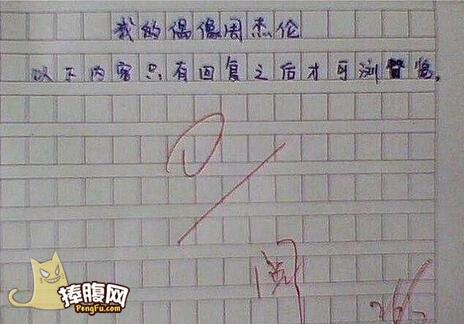 我的偶像周杰伦
以下内容只有回复之后才可浏览。
阅
捧腹网
PengFu.com